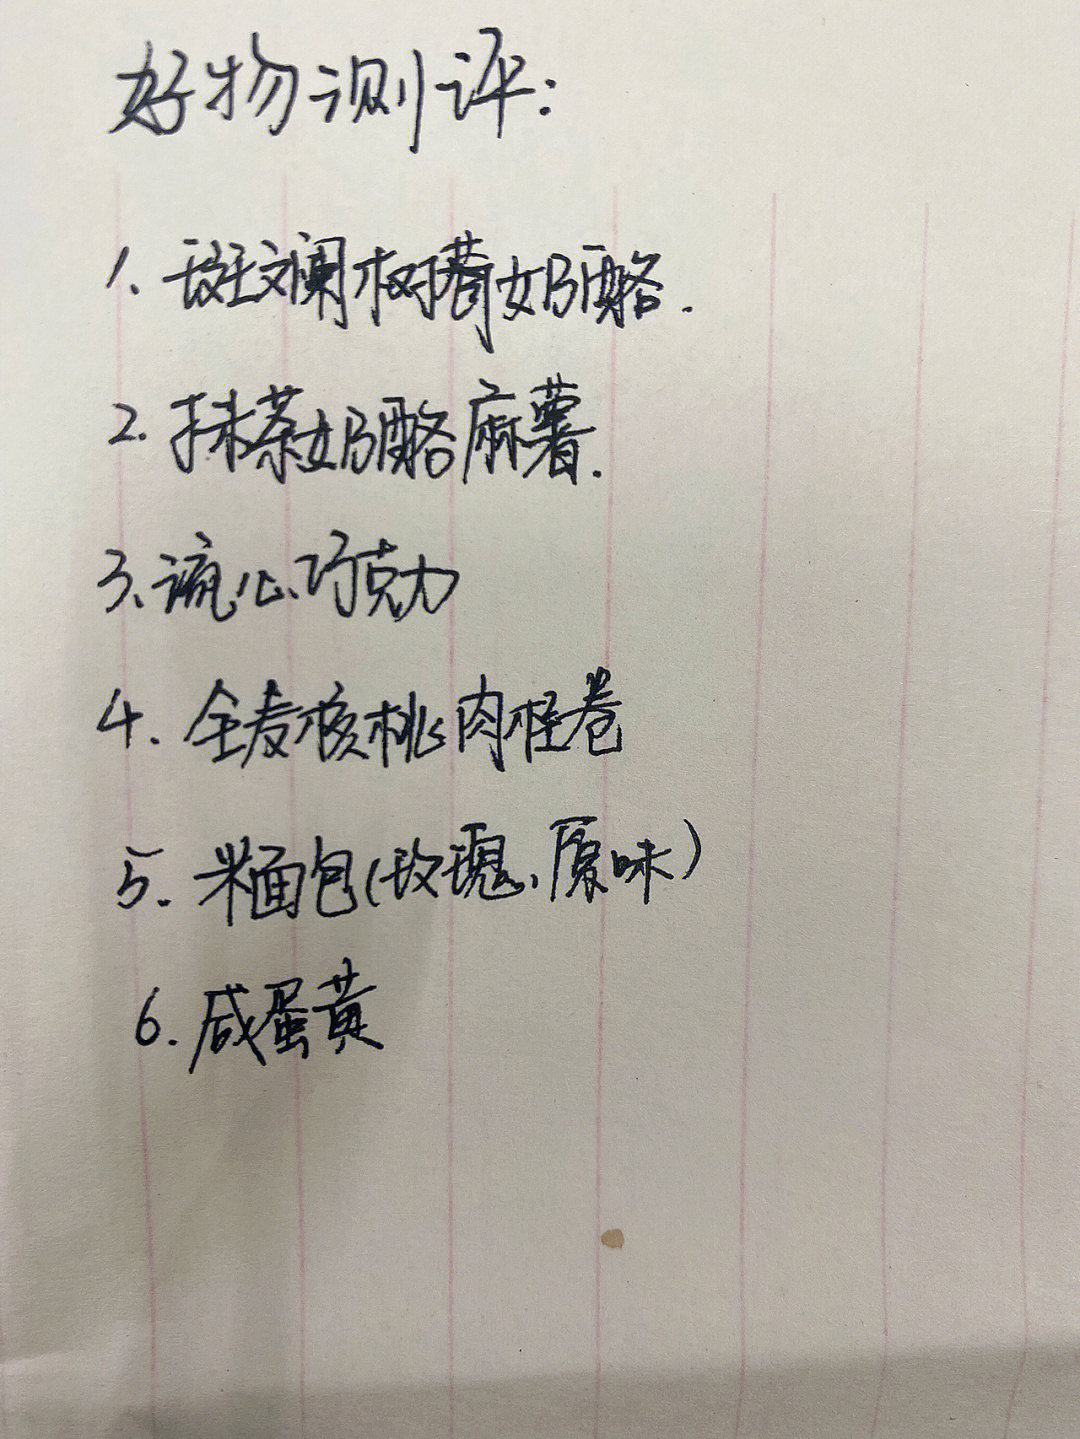 好物测评:
1. 斑斓树莓奶酪.
2. 抹茶奶酪麻薯.
3. 流心巧克力
4. 全麦核桃肉桂卷
5. 米面包(玫瑰、原味)
6. 咸蛋黄